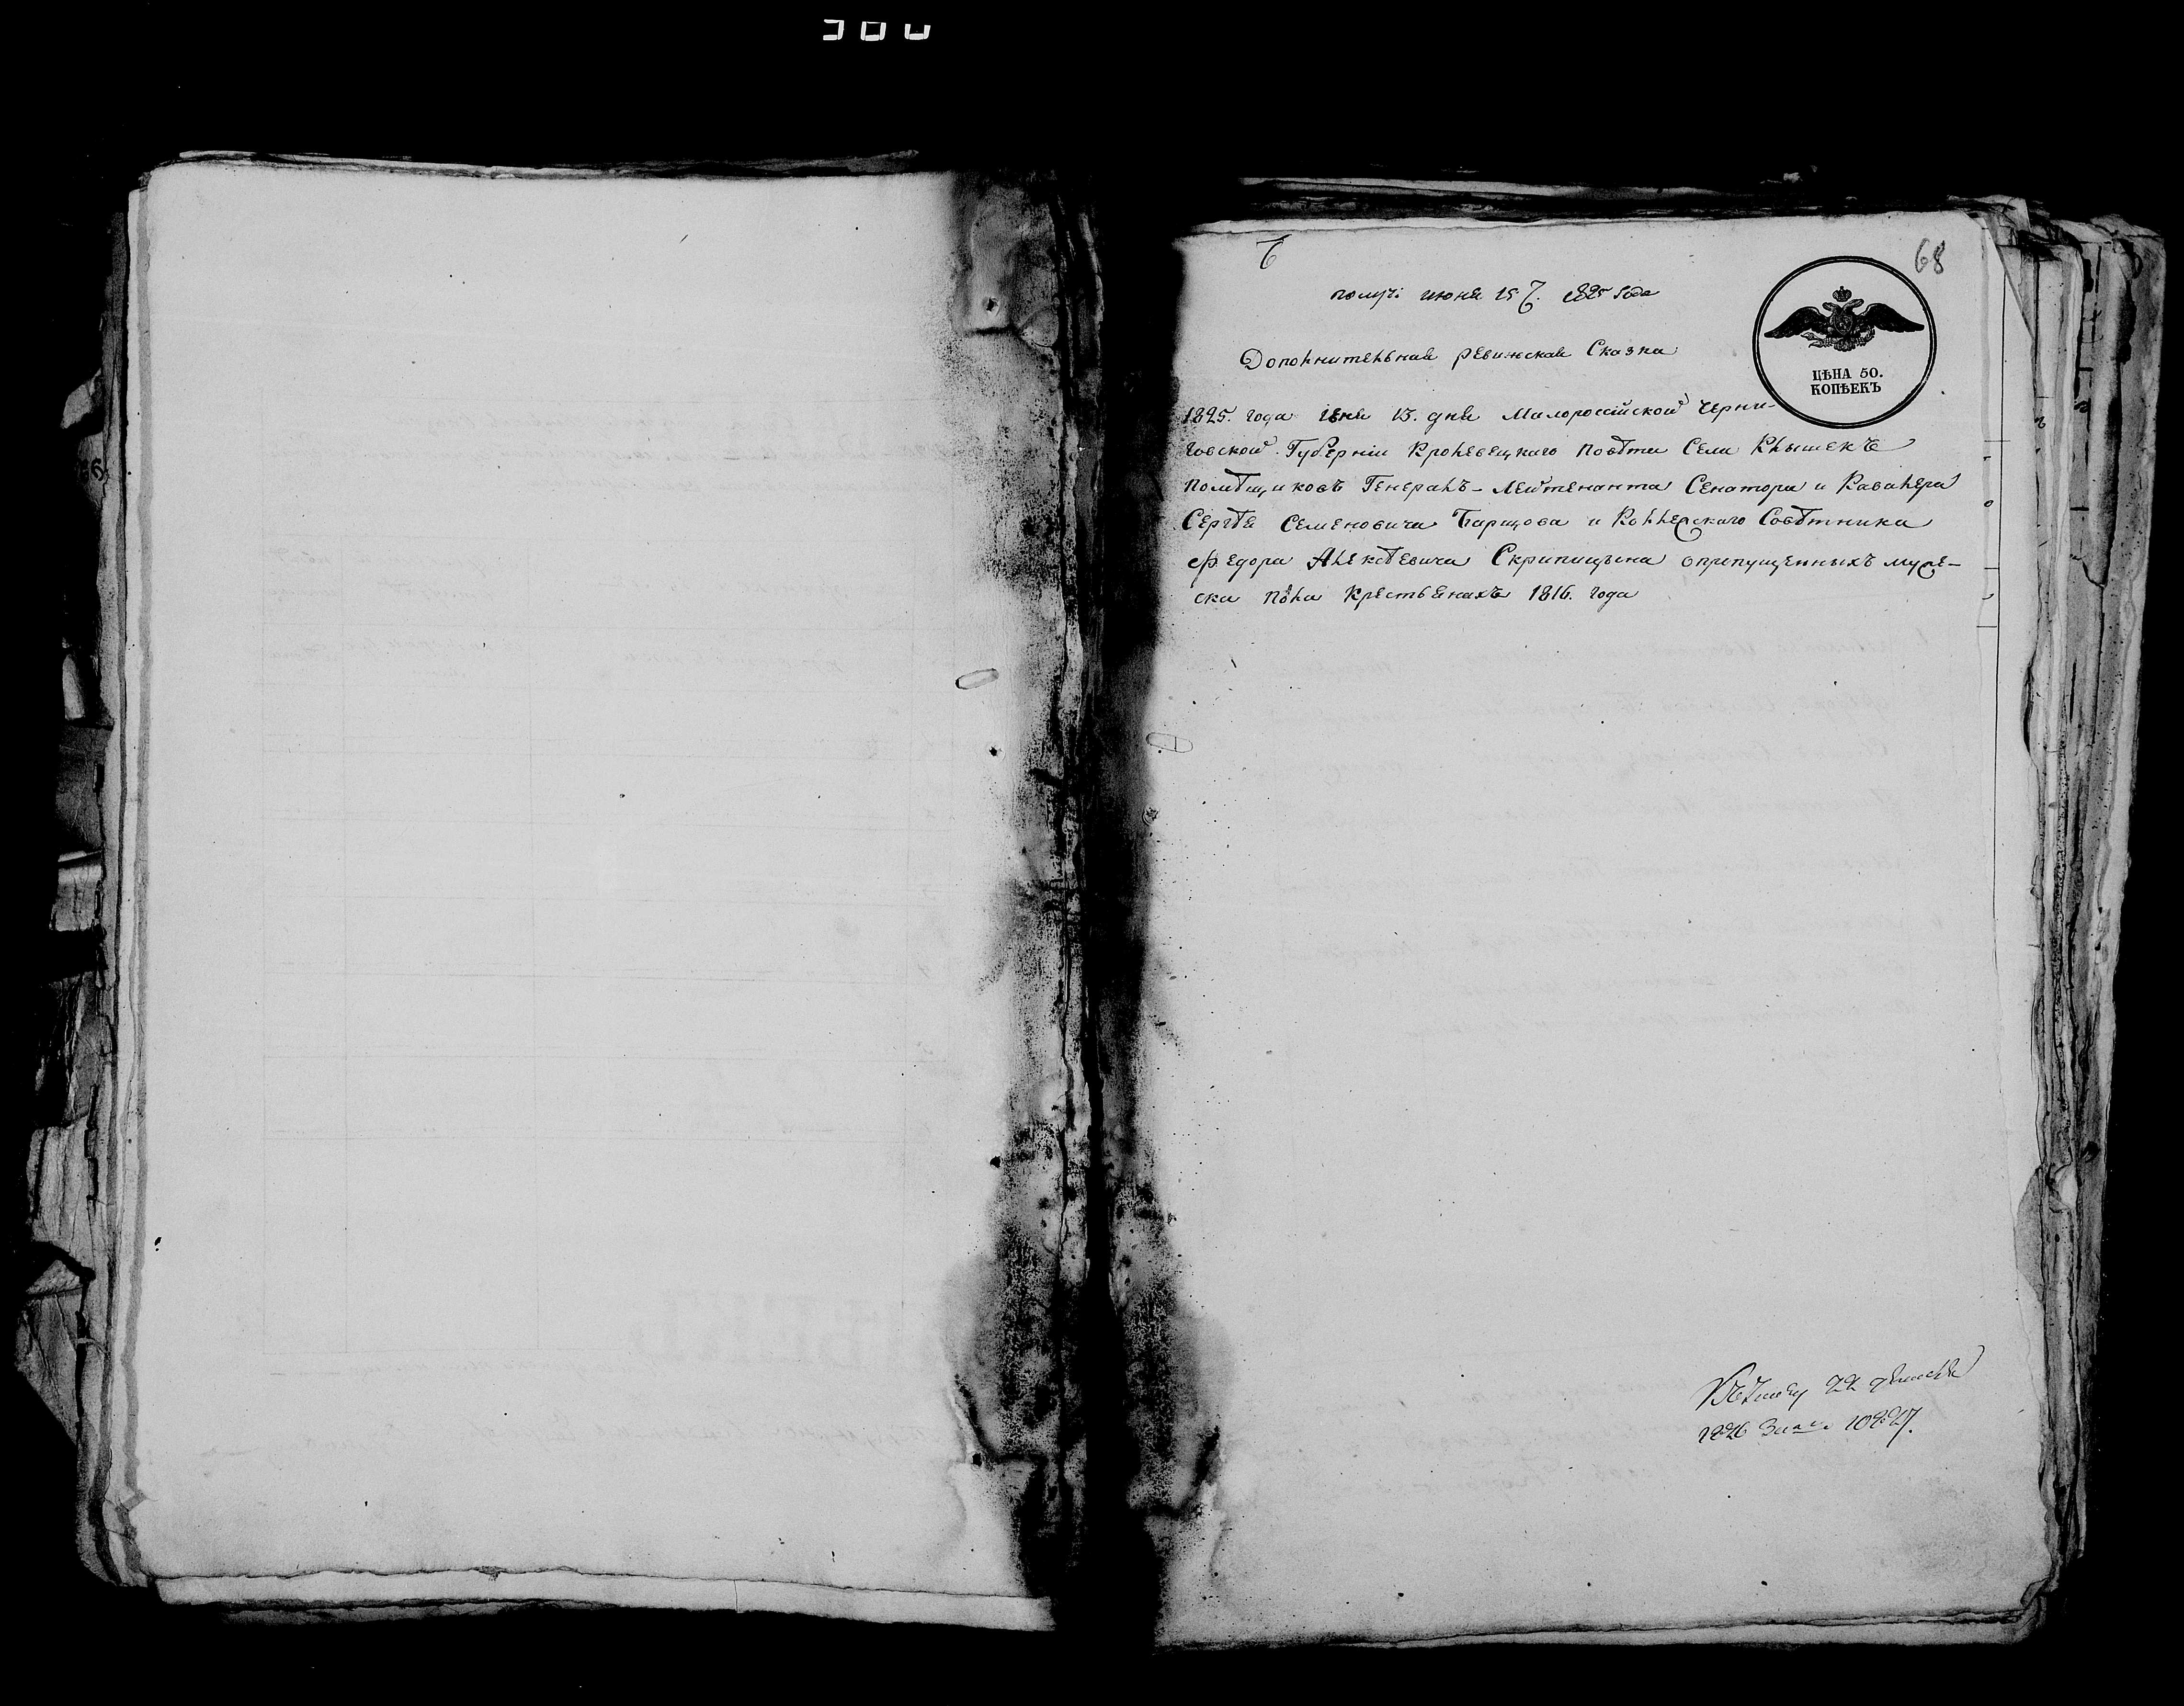 68
получ: июня 15 1825 года
Дополнительная ревижская Сказка
ЦѢНА 50.
КОПѢЕКЪ
1825. года июня 13. дня Малоросcійской Черни-
говской Губерніи Кролевецкаго повѣта Села Клышекъ
помѣщиковъ Генералъ-Лейтенанта Сенатора и Кавалера
Сергѣя Семеновича Барщова и Коллежскаго Совѣтника
Федора Алексѣевича Скрипицына опрепущенныхъ муже-
ска пола крестьянахъ 1816. года
1826 За